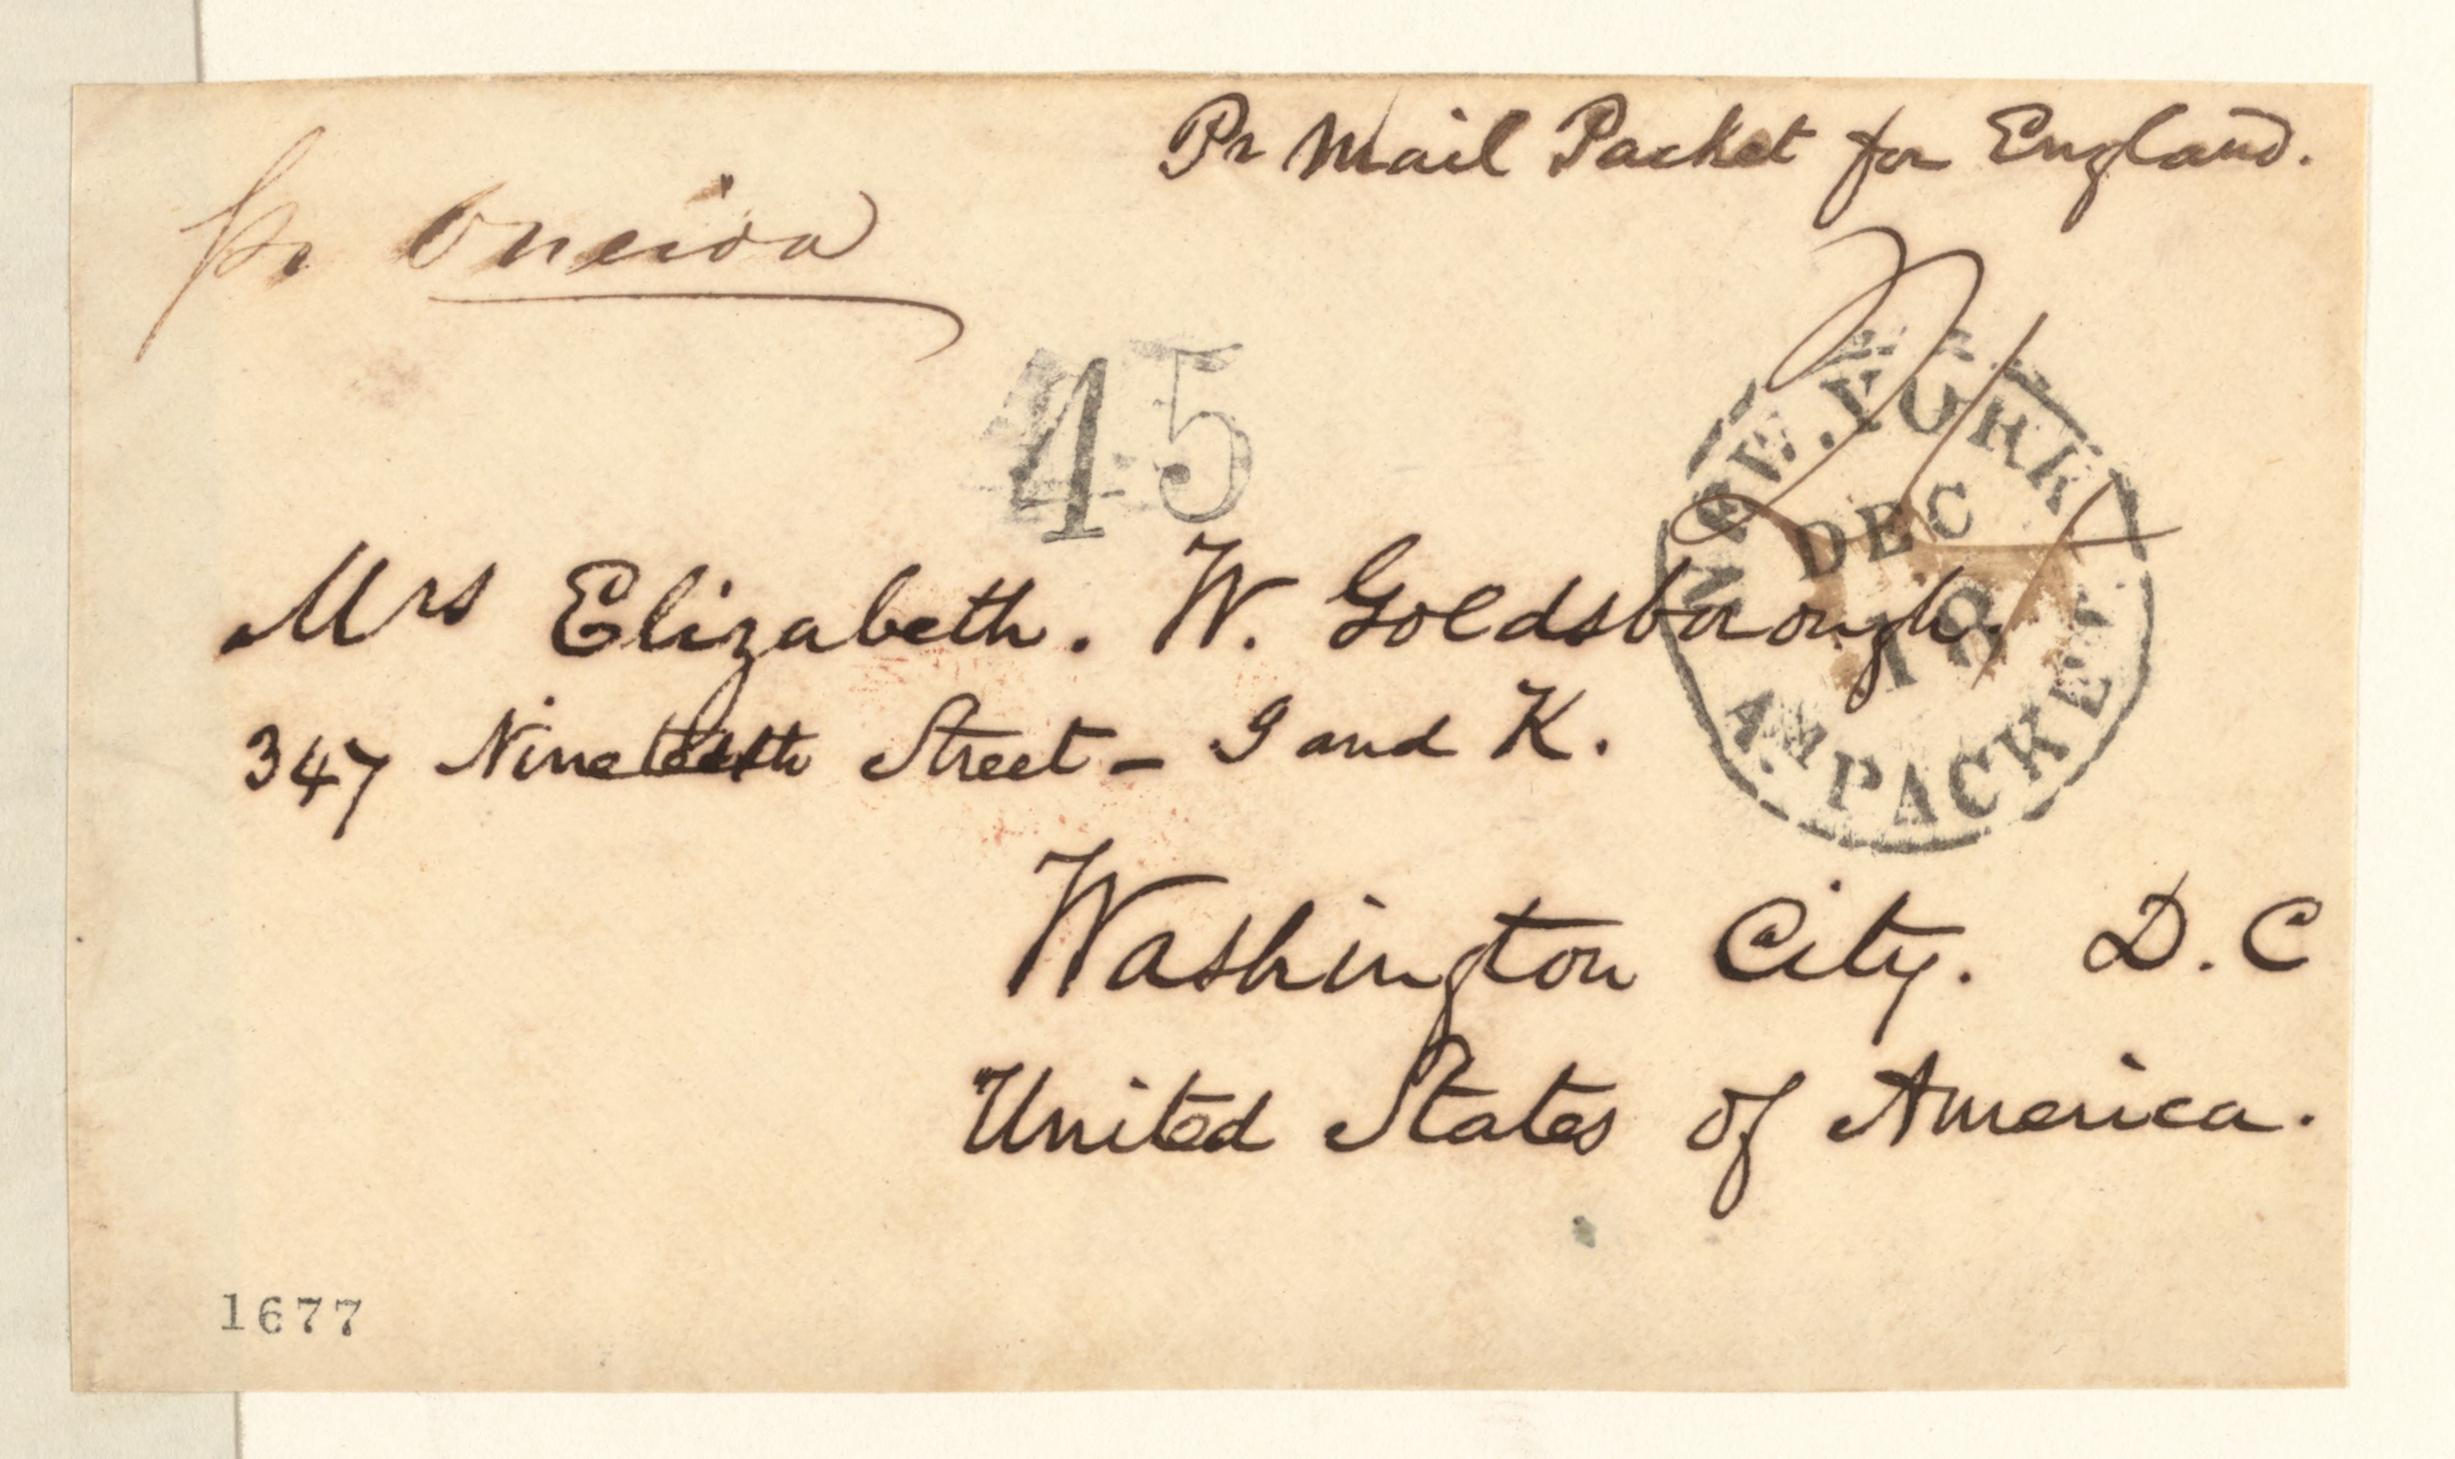 Pr Mail Packet for England.
pr Oneida
45
NEW.YORK
DEC
18
AM. PACKET
Mrs Elizabeth. W. Goldsborough,
347 Nineteenth Street - I and K.
Washington City. D.C
United States of America.
1677